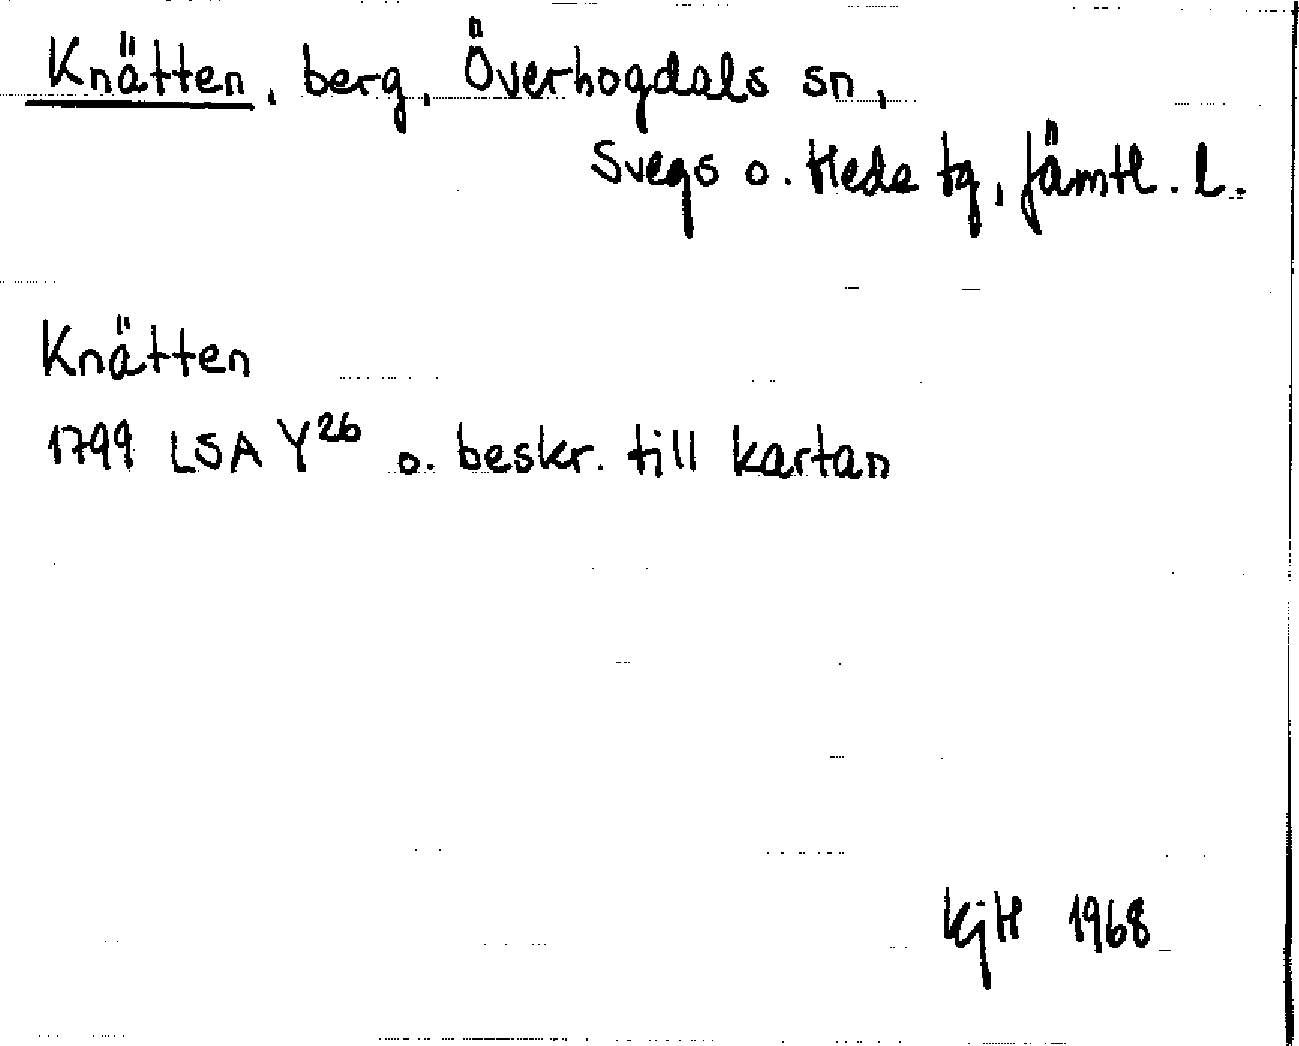 Knätten, berg, Överhogdals sn,
Svegs o. Heds tg, Jämtl. l.
Knätten
1799 LSA Y²⁶ o. beskr. till kartan
KjH 1968